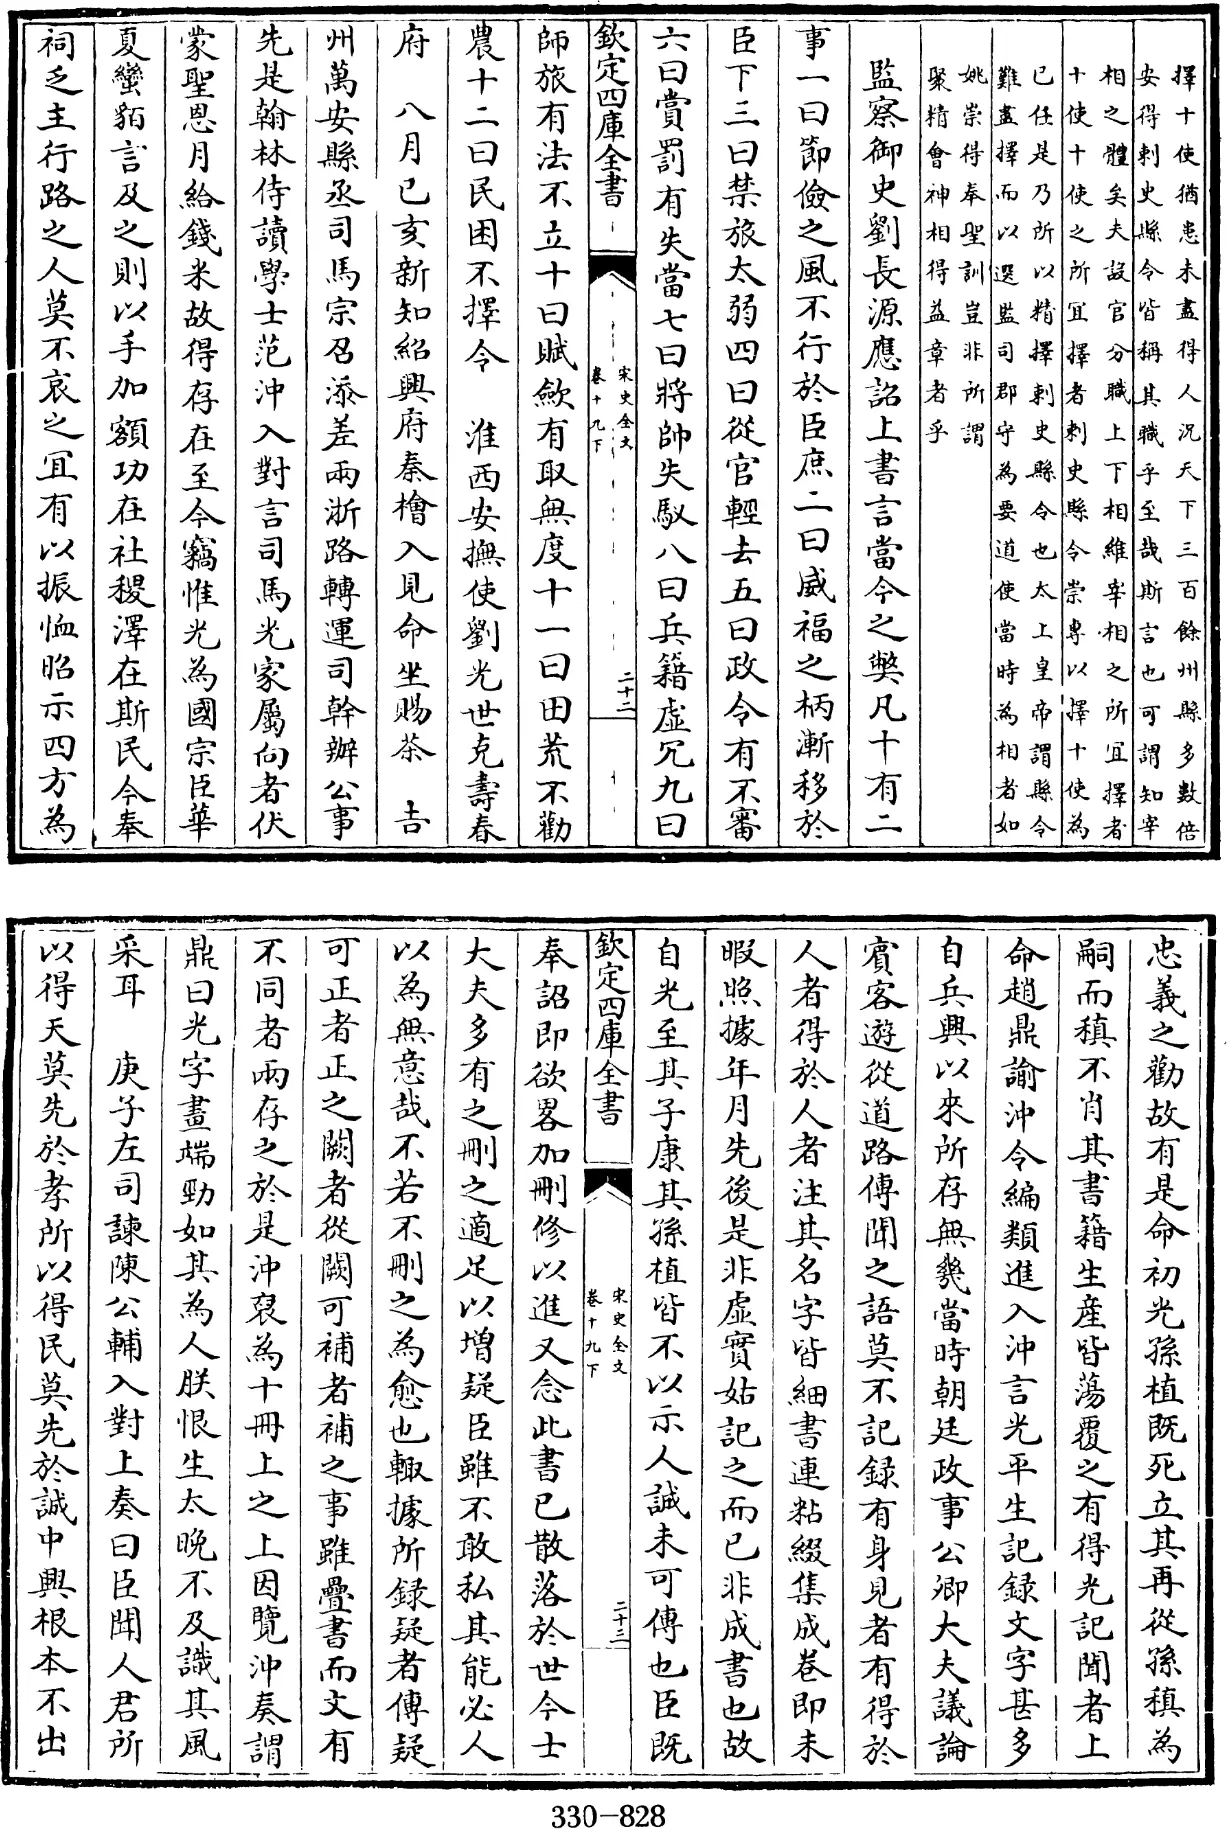 擇十使猶患未盡得人況天下三百餘州縣多數倍
安得刺史縣令皆稱其職乎至哉斯言也可謂知宰
相之體矣夫設官分職上下相維宰相之所宜擇者
十使十使之所宜擇者刺史縣令崇專以擇十使為
已任是乃所以精擇刺史縣令也太上皇帝謂縣令
難盡擇而以選監司郡守為要道使當時為相者如
姚崇得奉聖訓豈非所謂
聚精會神相得益章者乎
監察御史劉長源應詔上書言當今之獘凡十有二
事一曰節儉之風不行於臣庶二曰威福之柄漸移於
臣下三曰禁旅太弱四曰從官輕去五曰政令有不審
六曰賞罰有失當七曰將帥失馭八曰兵籍虛冗九曰
欽定四庫全書
宋史全文
卷十九下
二十二
師旅有法不立十曰賦歛有取無度十一曰田荒不勸
農十二曰民困不擇令　淮西安撫使劉光世克壽春
府　八月已亥新知紹興府秦檜入見命坐賜茶　吉
州萬安縣丞司馬宗召添差兩浙路轉運司幹辦公事
先是翰林侍讀學士范沖入對言司馬光家屬向者伏
蒙聖恩月給錢米故得存在至今竊惟光為國宗臣華
夏蠻貊言及之則以手加額功在社稷澤在斯民今奉
祠乏主行路之人莫不哀之宜有以振恤昭示四方為
忠義之勸故有是命初光孫植既死立其再從孫稹為
嗣而稹不肖其書籍生産皆蕩覆之有得光記聞者上
命趙鼎諭沖令編類進入沖言光平生記録文字甚多
自兵興以來所存無幾當時朝廷政事公卿大夫議論
賓客遊從道路傳聞之語莫不記録有身見者有得於
人者得於人者注其名字皆細書連粘綴集成卷即未
暇照據年月先後是非虛實姑記之而已非成書也故
自光至其子康其孫植皆不以示人誠未可傳也臣既
欽定四庫全書
宋史全文
卷十九下
二十三
奉詔即欲畧加刪修以進又念此書已散落於世今士
大夫多有之刪之適足以增疑臣雖不敢私其能必人
以為無意哉不若不刪之為愈也輙據所録疑者傳疑
可正者正之闕者從闕可補者補之事雖疊書而文有
不同者兩存之於是沖裒為十冊上之上因覽沖奏謂
鼎曰光字畫端勁如其為人朕恨生太晚不及識其風
采耳　庚子左司諫陳公輔入對上奏曰臣聞人君所
以得天莫先於孝所以得民莫先於誠中興根本不出
330-828